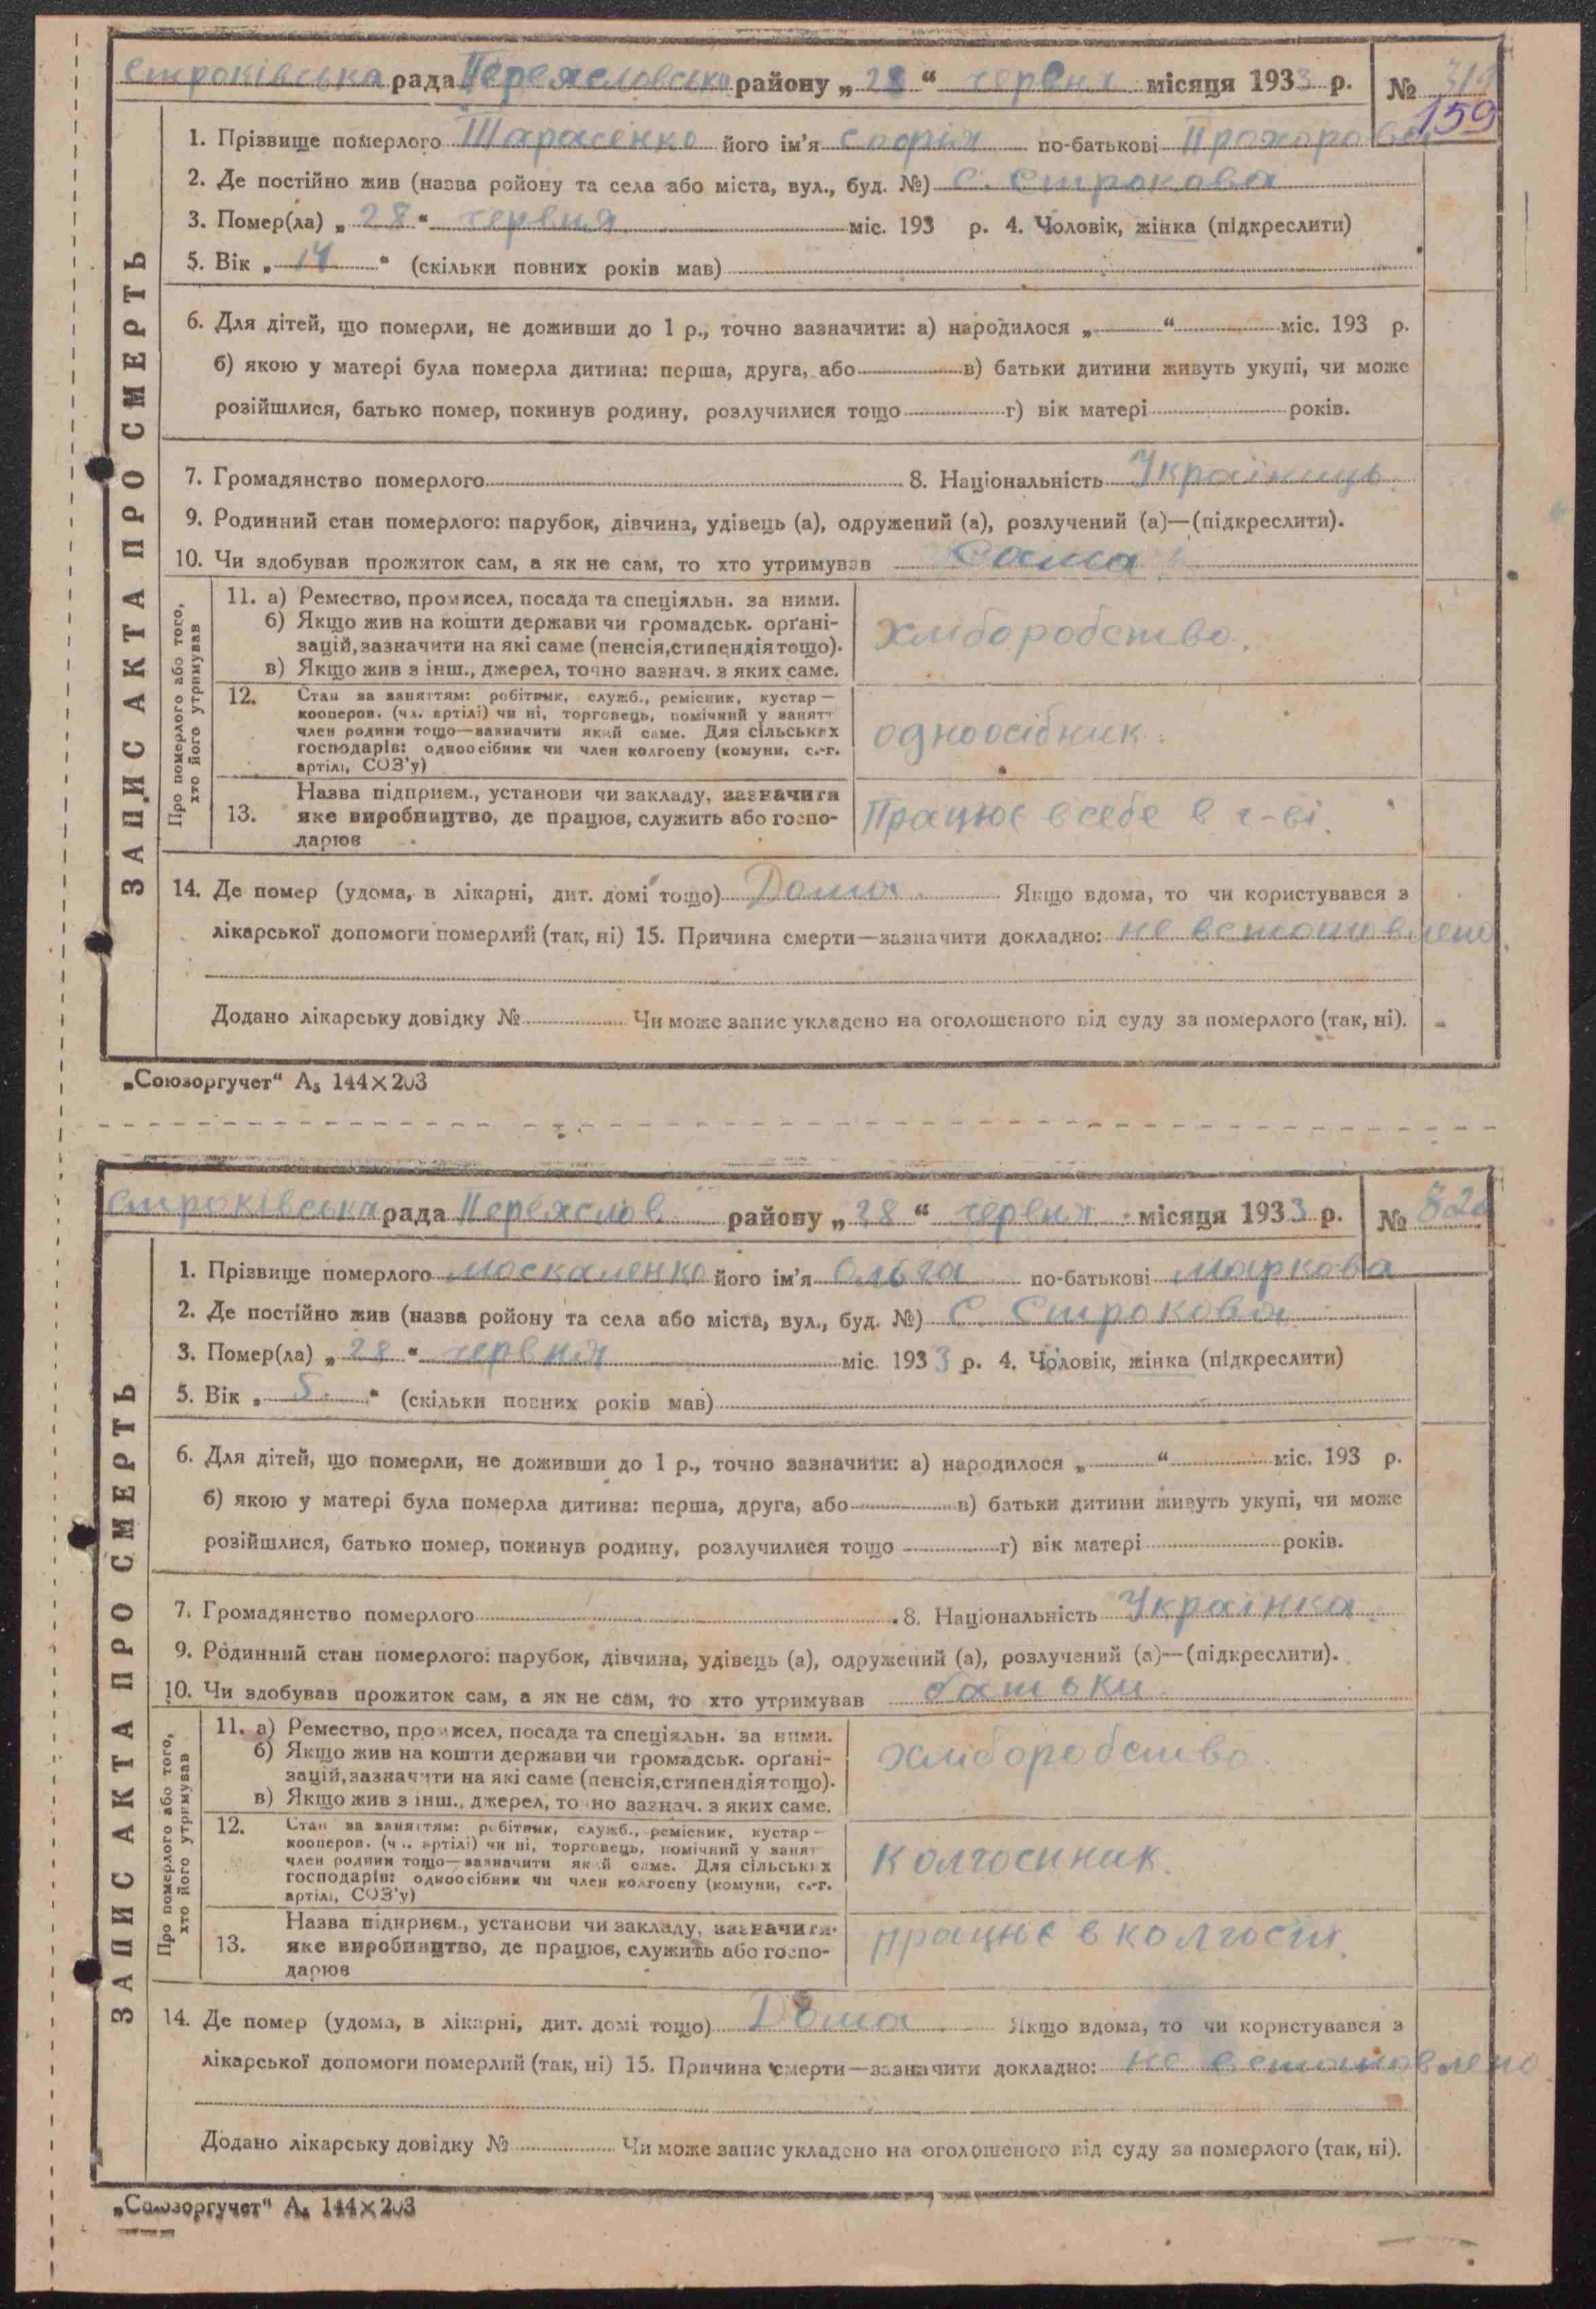 Строківська рада Переяславська району „28“ червня місяця 1933 р. № 319
159
1. Прізвище померлого Тарасенко його ім'я Софія по-батькові Прохорова
2. Де постійно жив (назва ройону та села або міста, вул., буд. №) с. Строкова
3. Помер(ла) „28“ червня міс. 193 р. 4. Чоловік, жінка (підкреслити)
5. Вік „14“ (скільки повних років мав)
6. Для дітей, що померли, не доживши до 1 р., точно зазначити: а) народилося „ “ міс. 193 р.
б) якою у матері була померла дитина: перша, друга, або в) батьки дитини живуть укупі, чи може
розійшлися, батько помер, покинув родину, розлучилися тощо г) вік матері років.
7. Громадянство померлого 8. Національність Українищь
9. Родинний стан померлого: парубок, дівчина, удівець (а), одружений (а), розлучений (а)—(підкреслити).
10. Чи здобував прожиток сам, а як не сам, то хто утримував Сама
Про померлого або того, хто його утримував
11. а) Ремество, промисел, посада та спеціяльн. за ними.
б) Якщо жив на кошти держави чи громадськ. орґані-
зацій, зазначити на які саме (пенсія, стипендія тощо).
в) Якщо жив з інш., джерел, точно зазнач. з яких саме.
хліборобство.
12. Стан за заняттям: робітник, служб., ремісник, кустар—
кооперов. (чл. артілі) чи ні, торговець, помічний у занятт
член родини тощо—зазначити який саме. Для сільських
господарів: одноосібник чи член колгоспу (комуни, с.-г.
артілі, СОЗ'у)
одноосібник.
13. Назва підприєм., установи чи закладу, зазначити
яке виробництво, де працює, служить або госпо-
дарює
Працює в себе в г-ві.
14. Де помер (удома, в лікарні, дит. домі тощо) Дома Якщо вдома, то чи користувався з
лікарської допомоги померлий (так, ні) 15. Причина смерти—зазначити докладно: не встановлено.
Додано лікарську довідку № Чи може запис укладено на оголошеного від суду за померлого (так, ні).
ЗАПИС АКТА ПРО СМЕРТЬ
„Союзоргучет“ А5 144×203
Строківська рада Переяслов району „28“ червня місяця 1933 р. № 320
1. Прізвище померлого Москаленко його ім'я Ольга по-батькові Маркова
2. Де постійно жив (назва ройону та села або міста, вул., буд. №) С. Строкова
3. Помер(ла) „28“ червня міс. 1933 р. 4. Чоловік, жінка (підкреслити)
5. Вік „5.“ (скільки повних років мав)
6. Для дітей, що померли, не доживши до 1 р., точно зазначити: а) народилося „ “ міс. 193 р.
б) якою у матері була померла дитина: перша, друга, або в) батьки дитини живуть укупі, чи може
розійшлися, батько помер, покинув родину, розлучилися тощо г) вік матері років.
7. Громадянство померлого 8. Національність Українка
9. Родинний стан померлого: парубок, дівчина, удівець (а), одружений (а), розлучений (а)—(підкреслити).
10. Чи здобував прожиток сам, а як не сам, то хто утримував батьки
Про померлого або того, хто його утримував
11. а) Ремество, промисел, посада та спеціяльн. за ними.
б) Якщо жив на кошти держави чи громадськ. орґані-
зацій, зазначити на які саме (пенсія, стипендія тощо).
в) Якщо жив з інш., джерел, точно зазнач. з яких саме.
хліборобство.
12. Стан за заняттям: робітник, служб., ремісник, кустар—
кооперов. (чл. артілі) чи ні, торговець, помічний у занят
член родини тощо—зазначити який саме. Для сільських
господарів: одноосібник чи член колгоспу (комуни, с.-г.
артілі, СОЗ'у)
колгоспник.
13. Назва підприєм., установи чи закладу, зазначити
яке виробництво, де працює, служить або госпо-
дарює
працює в колгоспі.
14. Де помер (удома, в лікарні, дит. домі тощо) Дома Якщо вдома, то чи користувався з
лікарської допомоги померлий (так, ні) 15. Причина смерти—зазначити докладно: не встановлено
Додано лікарську довідку № Чи може запис укладено на оголошеного від суду за померлого (так, ні).
ЗАПИС АКТА ПРО СМЕРТЬ
„Союзоргучет“ А5 144×203